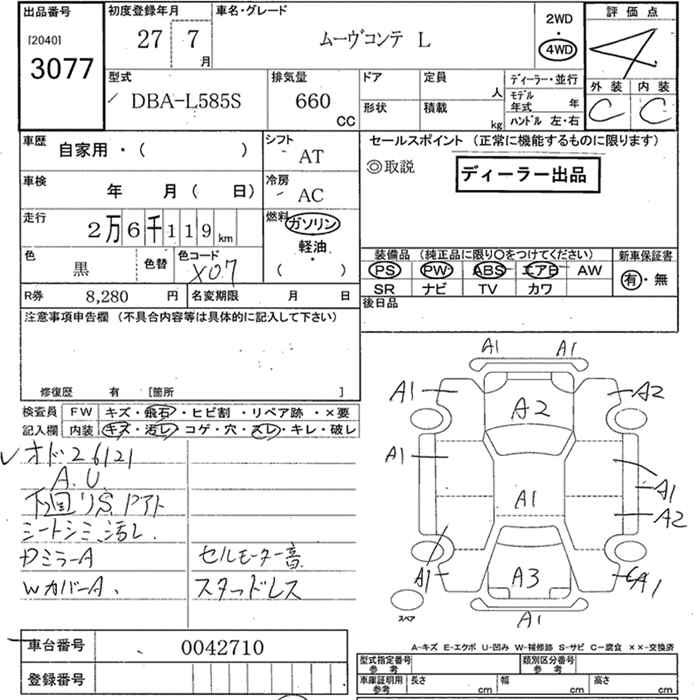 出品番号 [2040] 3077
初度登録年月 27 7月
車名・グレード ムーヴコンテ L
2WD・4WD
評価点 4
外装 C 内装 C
型式 DBA-L585S
排気量 660 CC
ドア 定員 人
形状 積載 kg
ディーラー・並行
モデル年式 年
ハンドル 左・右
車歴 自家用・( )
シフト AT
車検 年 月( 日)
冷房 AC
走行 2万6千119km
燃料 ガソリン 軽油・( )
色 黒 色替 色コード X07
R券 8,280 円 名変期限 月 日
セールスポイント (正常に機能するものに限ります)
◎取説 ディーラー出品
装備品 (純正品に限り○をつけてください) 新車保証書
PS PW ABS エアB AW 有・無
SR ナビ TV カワ
後日品
注意事項申告欄 (不具合内容等は具体的に記入して下さい)
修復歴 有 [箇所 ]
検査員 FW キズ・飛石・ヒビ割・リペア跡・×要
記入欄 内装 キズ・汚レ・コゲ・穴・スレ・キレ・破レ
オド26121
A.U.
下回リS
シートシミ、汚レ.
DミラーA セルモーター音
WカバーA. スタッドレス
A1 A1
A1 A2 A2
A1 A1 A1
A2
A1 A3 A1
A1
スペア
A-キズ E-エクボ U-凹み W-補修跡 S-サビ C-腐食 ××-交換済
車台番号 0042710
登録番号
型式指定番号 参考 類別区分番号 参考
車庫証明用 参考 長さ cm 幅 cm 高さ cm